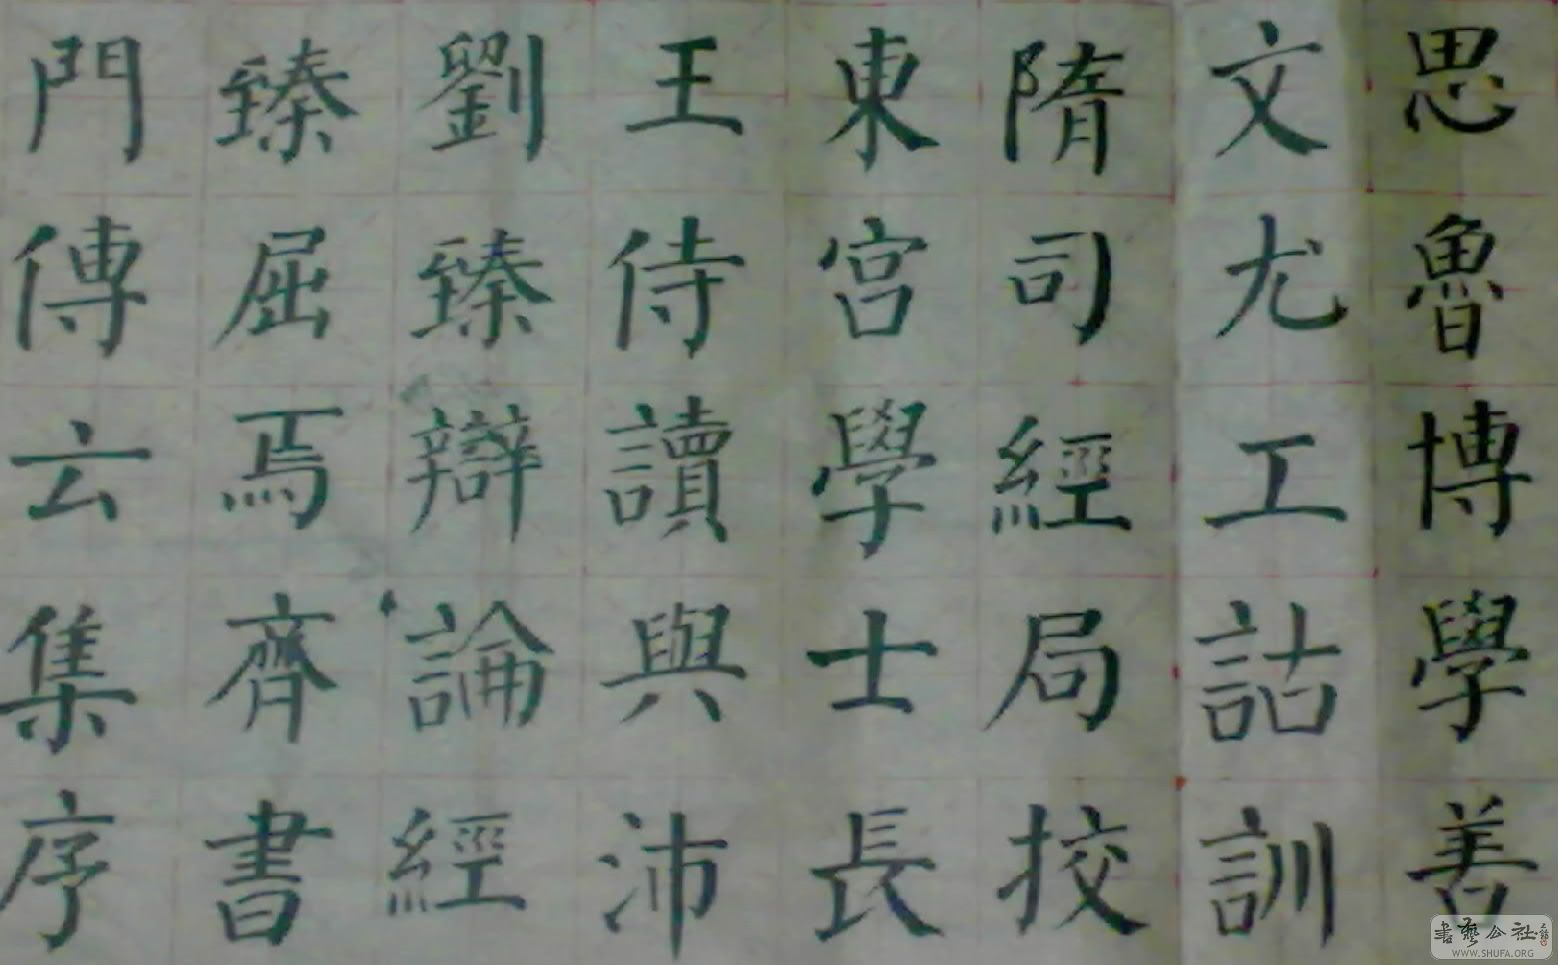 思魯博學善
文尤工詁訓
隋司經局挍
東宮學士長
王侍讀與沛
劉臻辯論經
臻屈焉齊書
門傳云集序
書藝公社
WWW.SHUFA.ORG